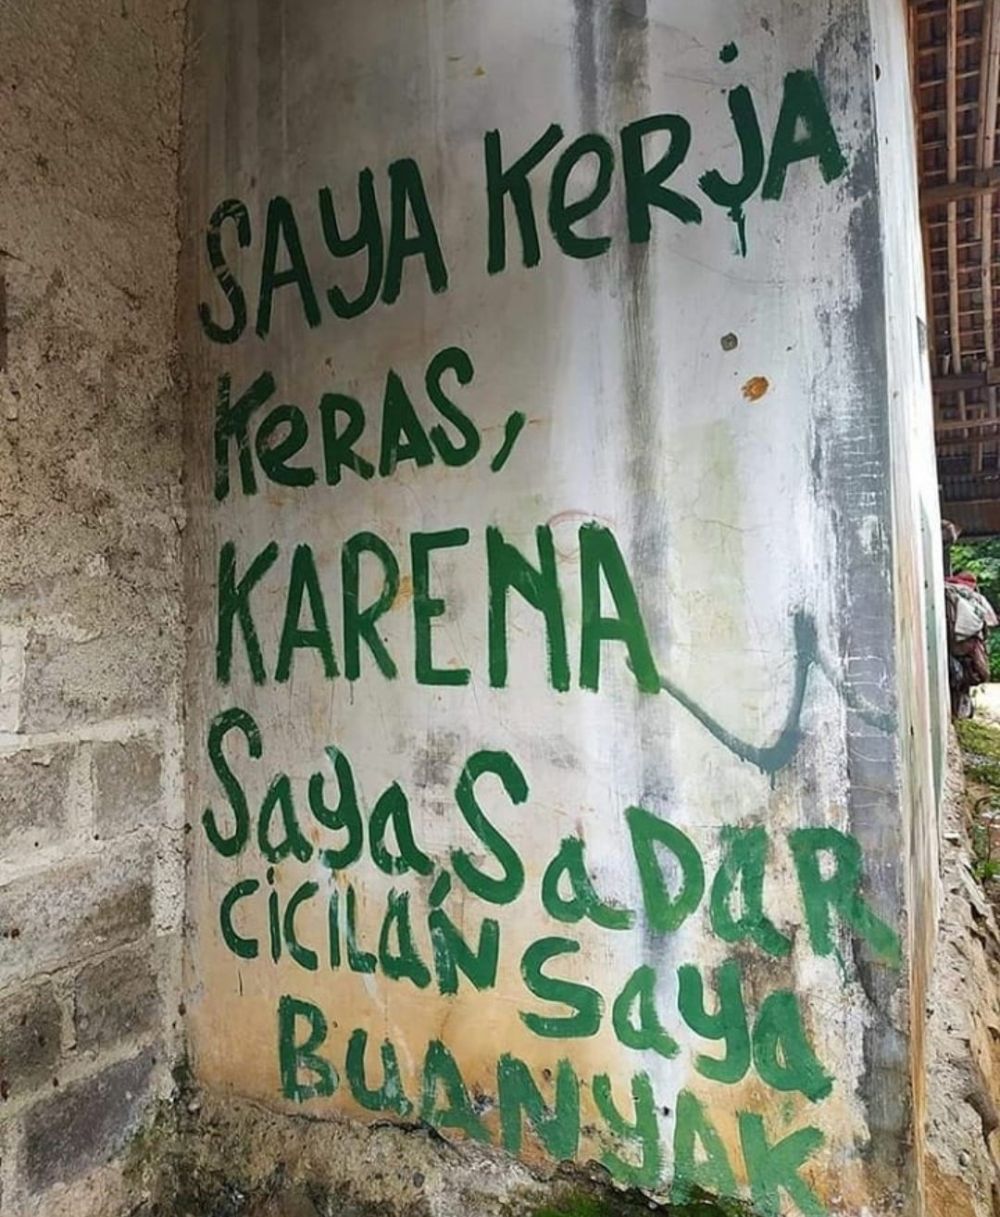 SAYA KeRjA
KeRAS,
KARENA
Saya SaDaR
CiCiLaN Saya
BUANyAK